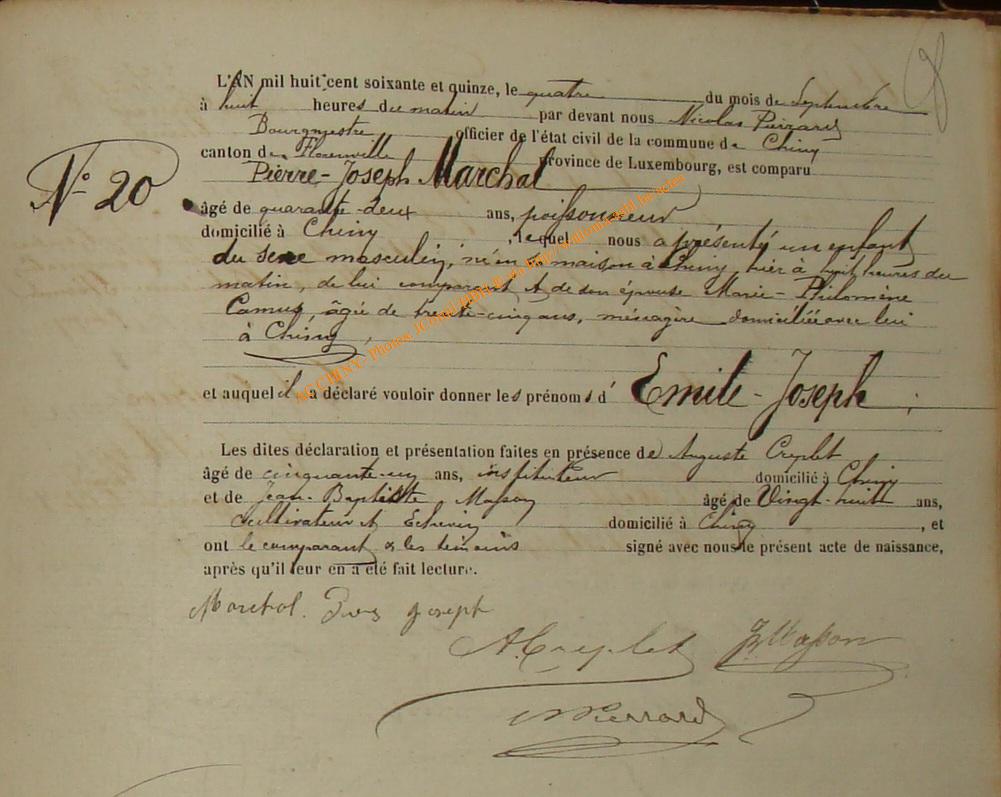 L'AN mil huit cent soixante et quinze, le quatre du mois de Septembre
à huit heures du matin par devant nous Nicolas Pierrard
Bourgmestre officier de l'état civil de la commune de Chiny
canton de Florenville province de Luxembourg, est comparu
Pierre-Joseph Marchal
N° 20
âgé de quarante-deux ans, poissonneur
domicilié à Chiny, lequel nous a présenté un enfant
du sexe masculin, né en sa maison à Chiny, hier à huit heures du
matin, de lui comparant & de son épouse Marie-Philomène
Camus, âgée de trente-cinq ans, ménagère domiciliée avec lui
à Chiny,
et auquel il a déclaré vouloir donner les prénoms d'Emile-Joseph.
Les dites déclaration et présentation faites en présence de Auguste Creplet
âgé de cinquante-un ans, instituteur domicilié à Chiny
et de Jean-Baptiste Masson âgé de Vingt-huit ans,
cultivateur & Echevin domicilié à Chiny, et
ont le comparant & les témoins signé avec nous le présent acte de naissance,
après qu'il leur en a été fait lecture.
Marchal. Joseph
A. Creplet JBMasson
NPierrard